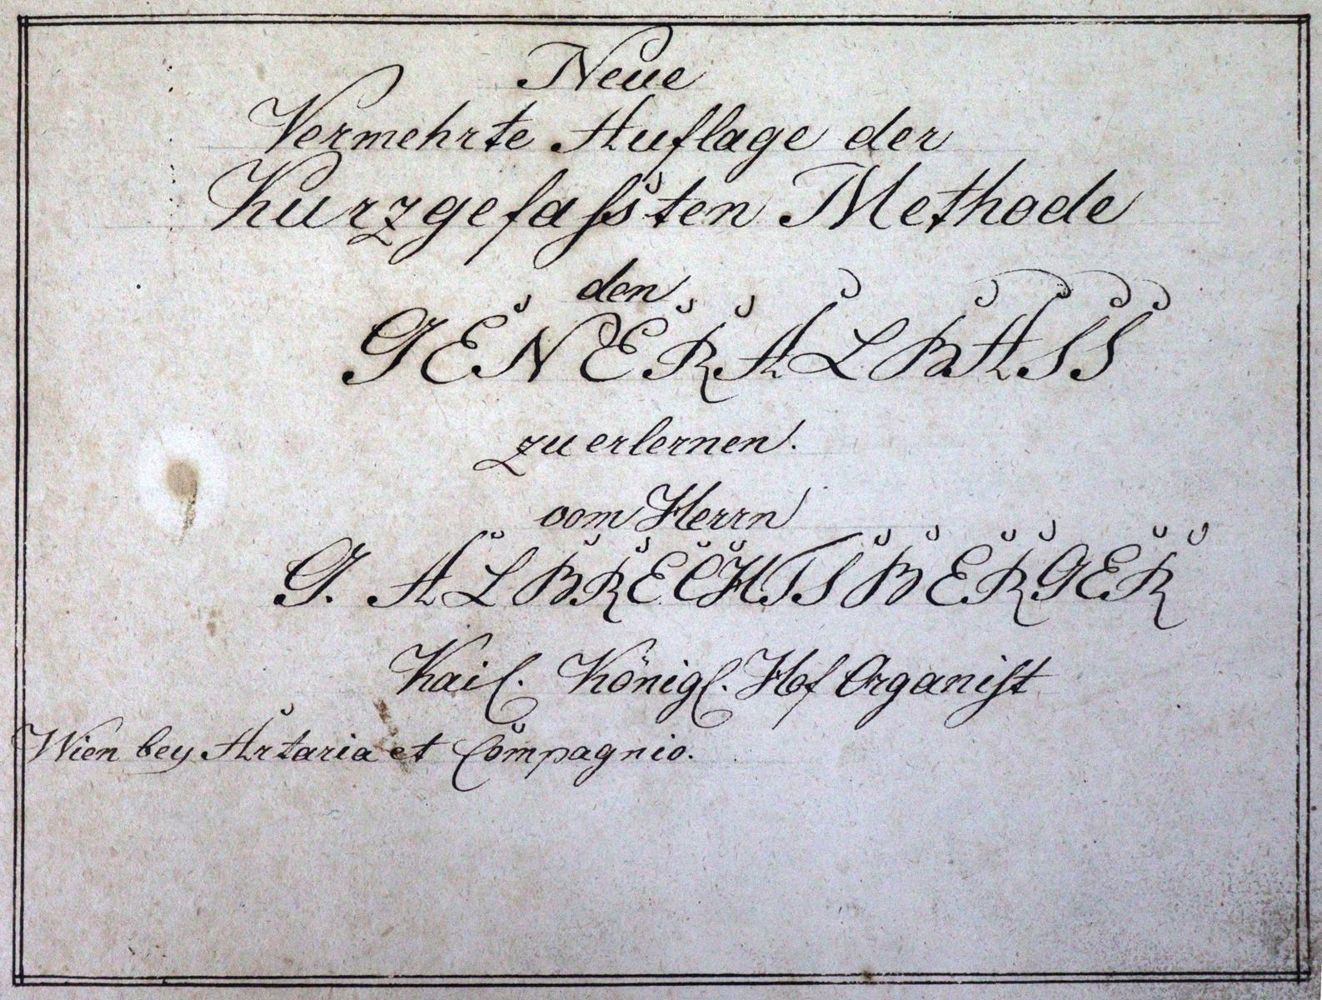 Neue
Vermehrte Auflage der
Kurzgefaſsten Methode
den
GENERALBASS
zu erlernen.
vom Herrn
G. ALBRECHTSBERGER
Kaiſ. Königl. Hof Organiſt
Wien bey Artaria et Compagnie.